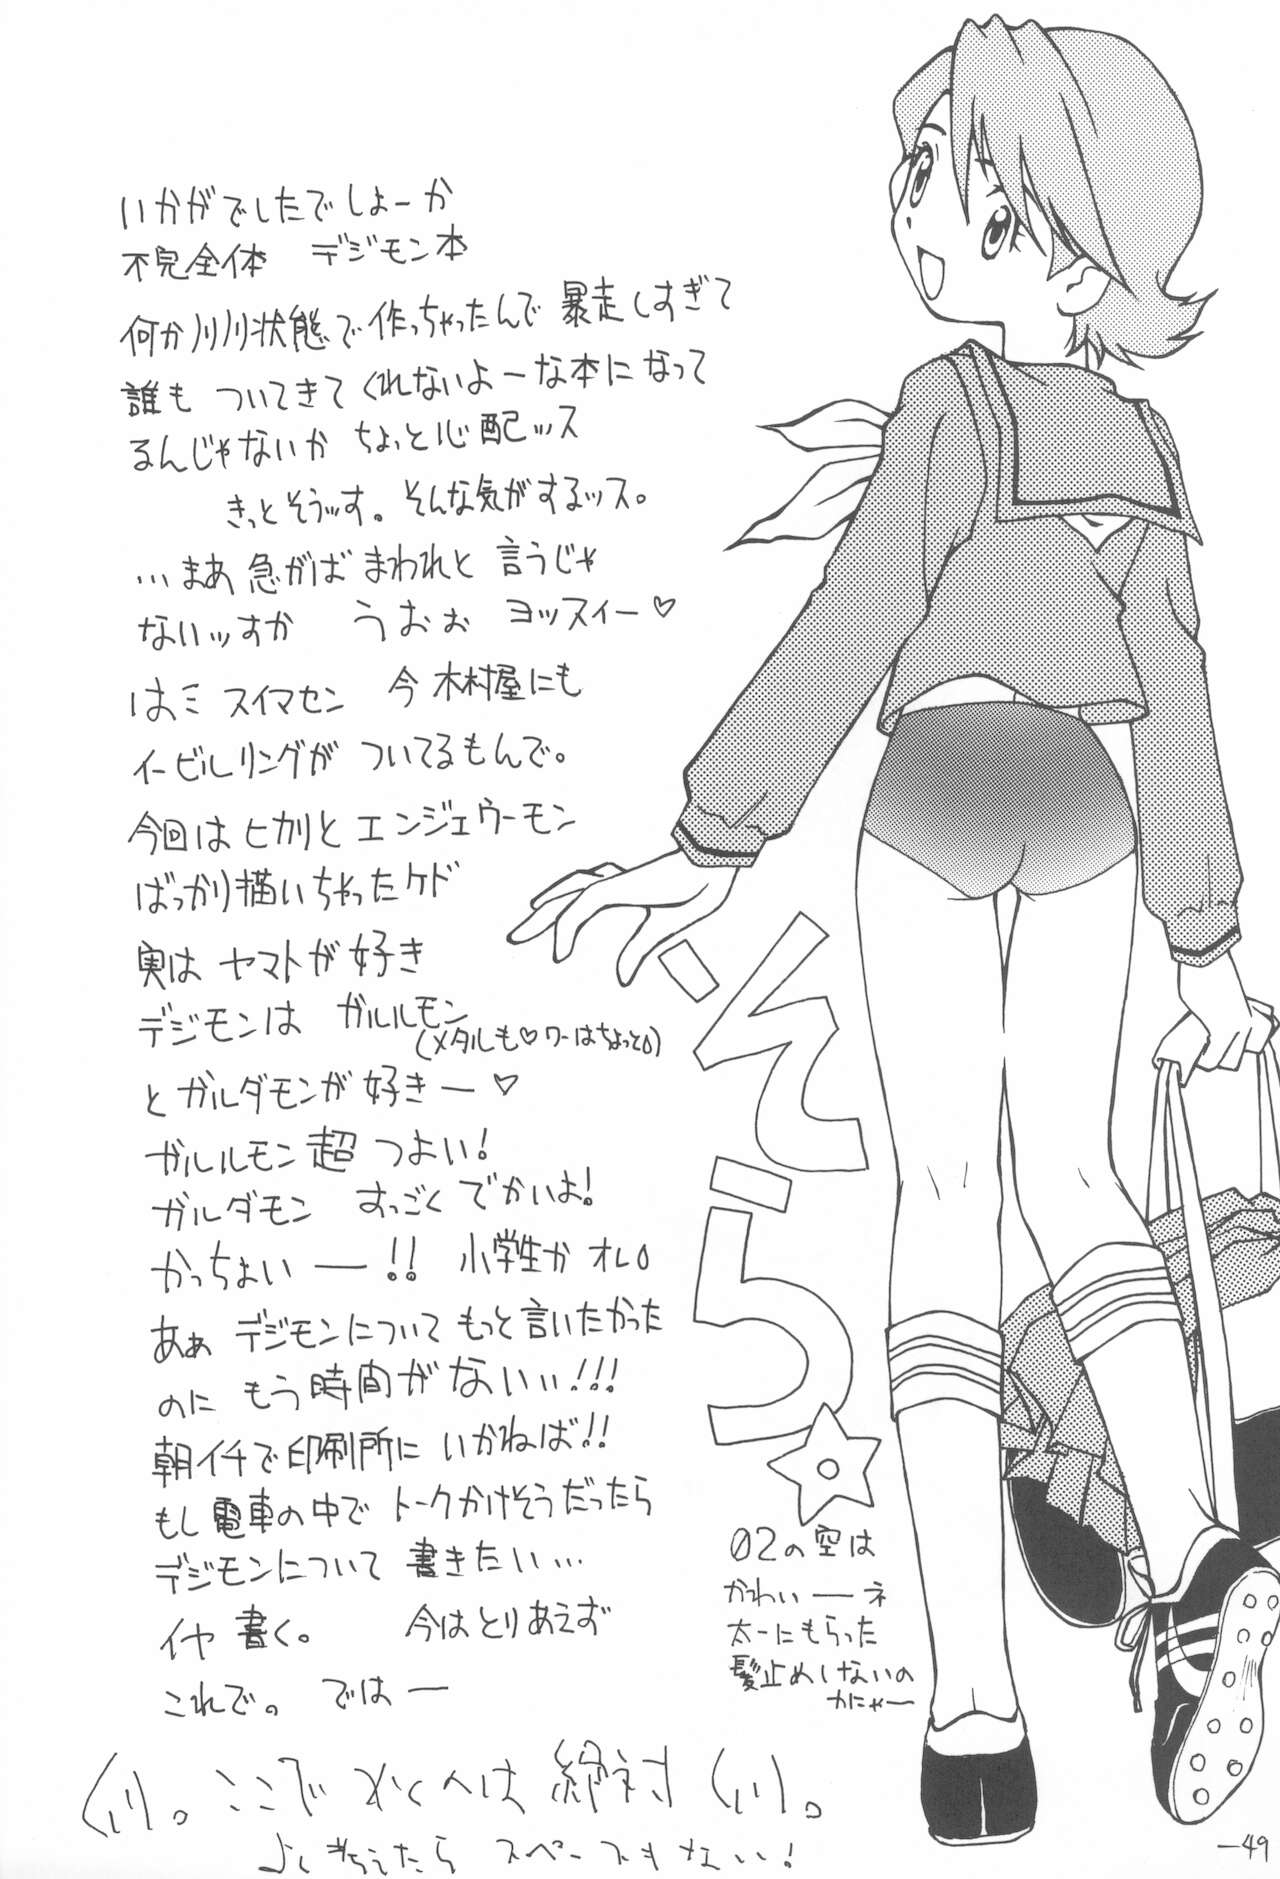 いかがでしたでしょーか
不完全体　デジモン本
何か川川状態で作っちゃったんで 暴走しすぎて
誰も ついてきてくれないよーな本になって
るんじゃないか ちょっと心配ッス
きっとそうッす。そんな気がするッス。
…まあ 急がば まわれと 言うじゃ
ないッすか　うおぉ　ヨッスィー♡
はミ スイマセン　今 木村屋にも
イービルリングが ついてるもんで。
今回は ヒカリと エンジェウーモン
ばっかり描いちゃったケド
実は ヤマトが好き
デジモンは　ガルルモン
(メタルも♡ワーはちょっと)
とガルダモンが好きー♡
ガルルモン 超 つよい!
ガルダモン　すっごく でかいよ!
かっちょいー!!　小学生か オレ
あぁ デジモンについて もっと言いたかった
のに もう時間がないぃ!!!
朝イチで印刷所に いかねば!!
もし電車の中で トークかけそうだったら
デジモンについて 書きたい…
イヤ 書く。　今はとりあえず
これで。 ではー
ここで
は絶対
よく考えたら スペースもない!
そら☆
02の空は
かわいーネ
太一にもらった
髪止めしないの
かにゃー
－49